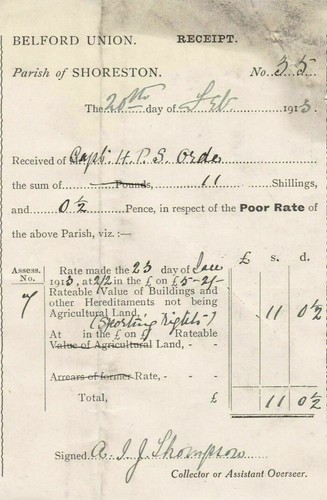 BELFORD UNION. RECEIPT.
Parish of SHORESTON. No. 35
The 20th day of Feb 1913.
Received of Capt H. P. S. Orde
the sum of Pounds, 11 Shillings,
and 0½ Pence, in respect of the Poor Rate of
the above Parish, viz. :—
Assess. No.
7
Rate made the 23 day of Jan
1913, at 2/2 in the £ on £5-2/-
Rateable Value of Buildings and
other Hereditaments not being
Agricultural Land,
(Sporting Rights)
At in the £ on £ Rateable
Value of Agricultural Land, -
Arrears of former Rate, -
Total, £
£ s. d.
11 0½
11 0½
Signed A. J. Thompson
Collector or Assistant Overseer.